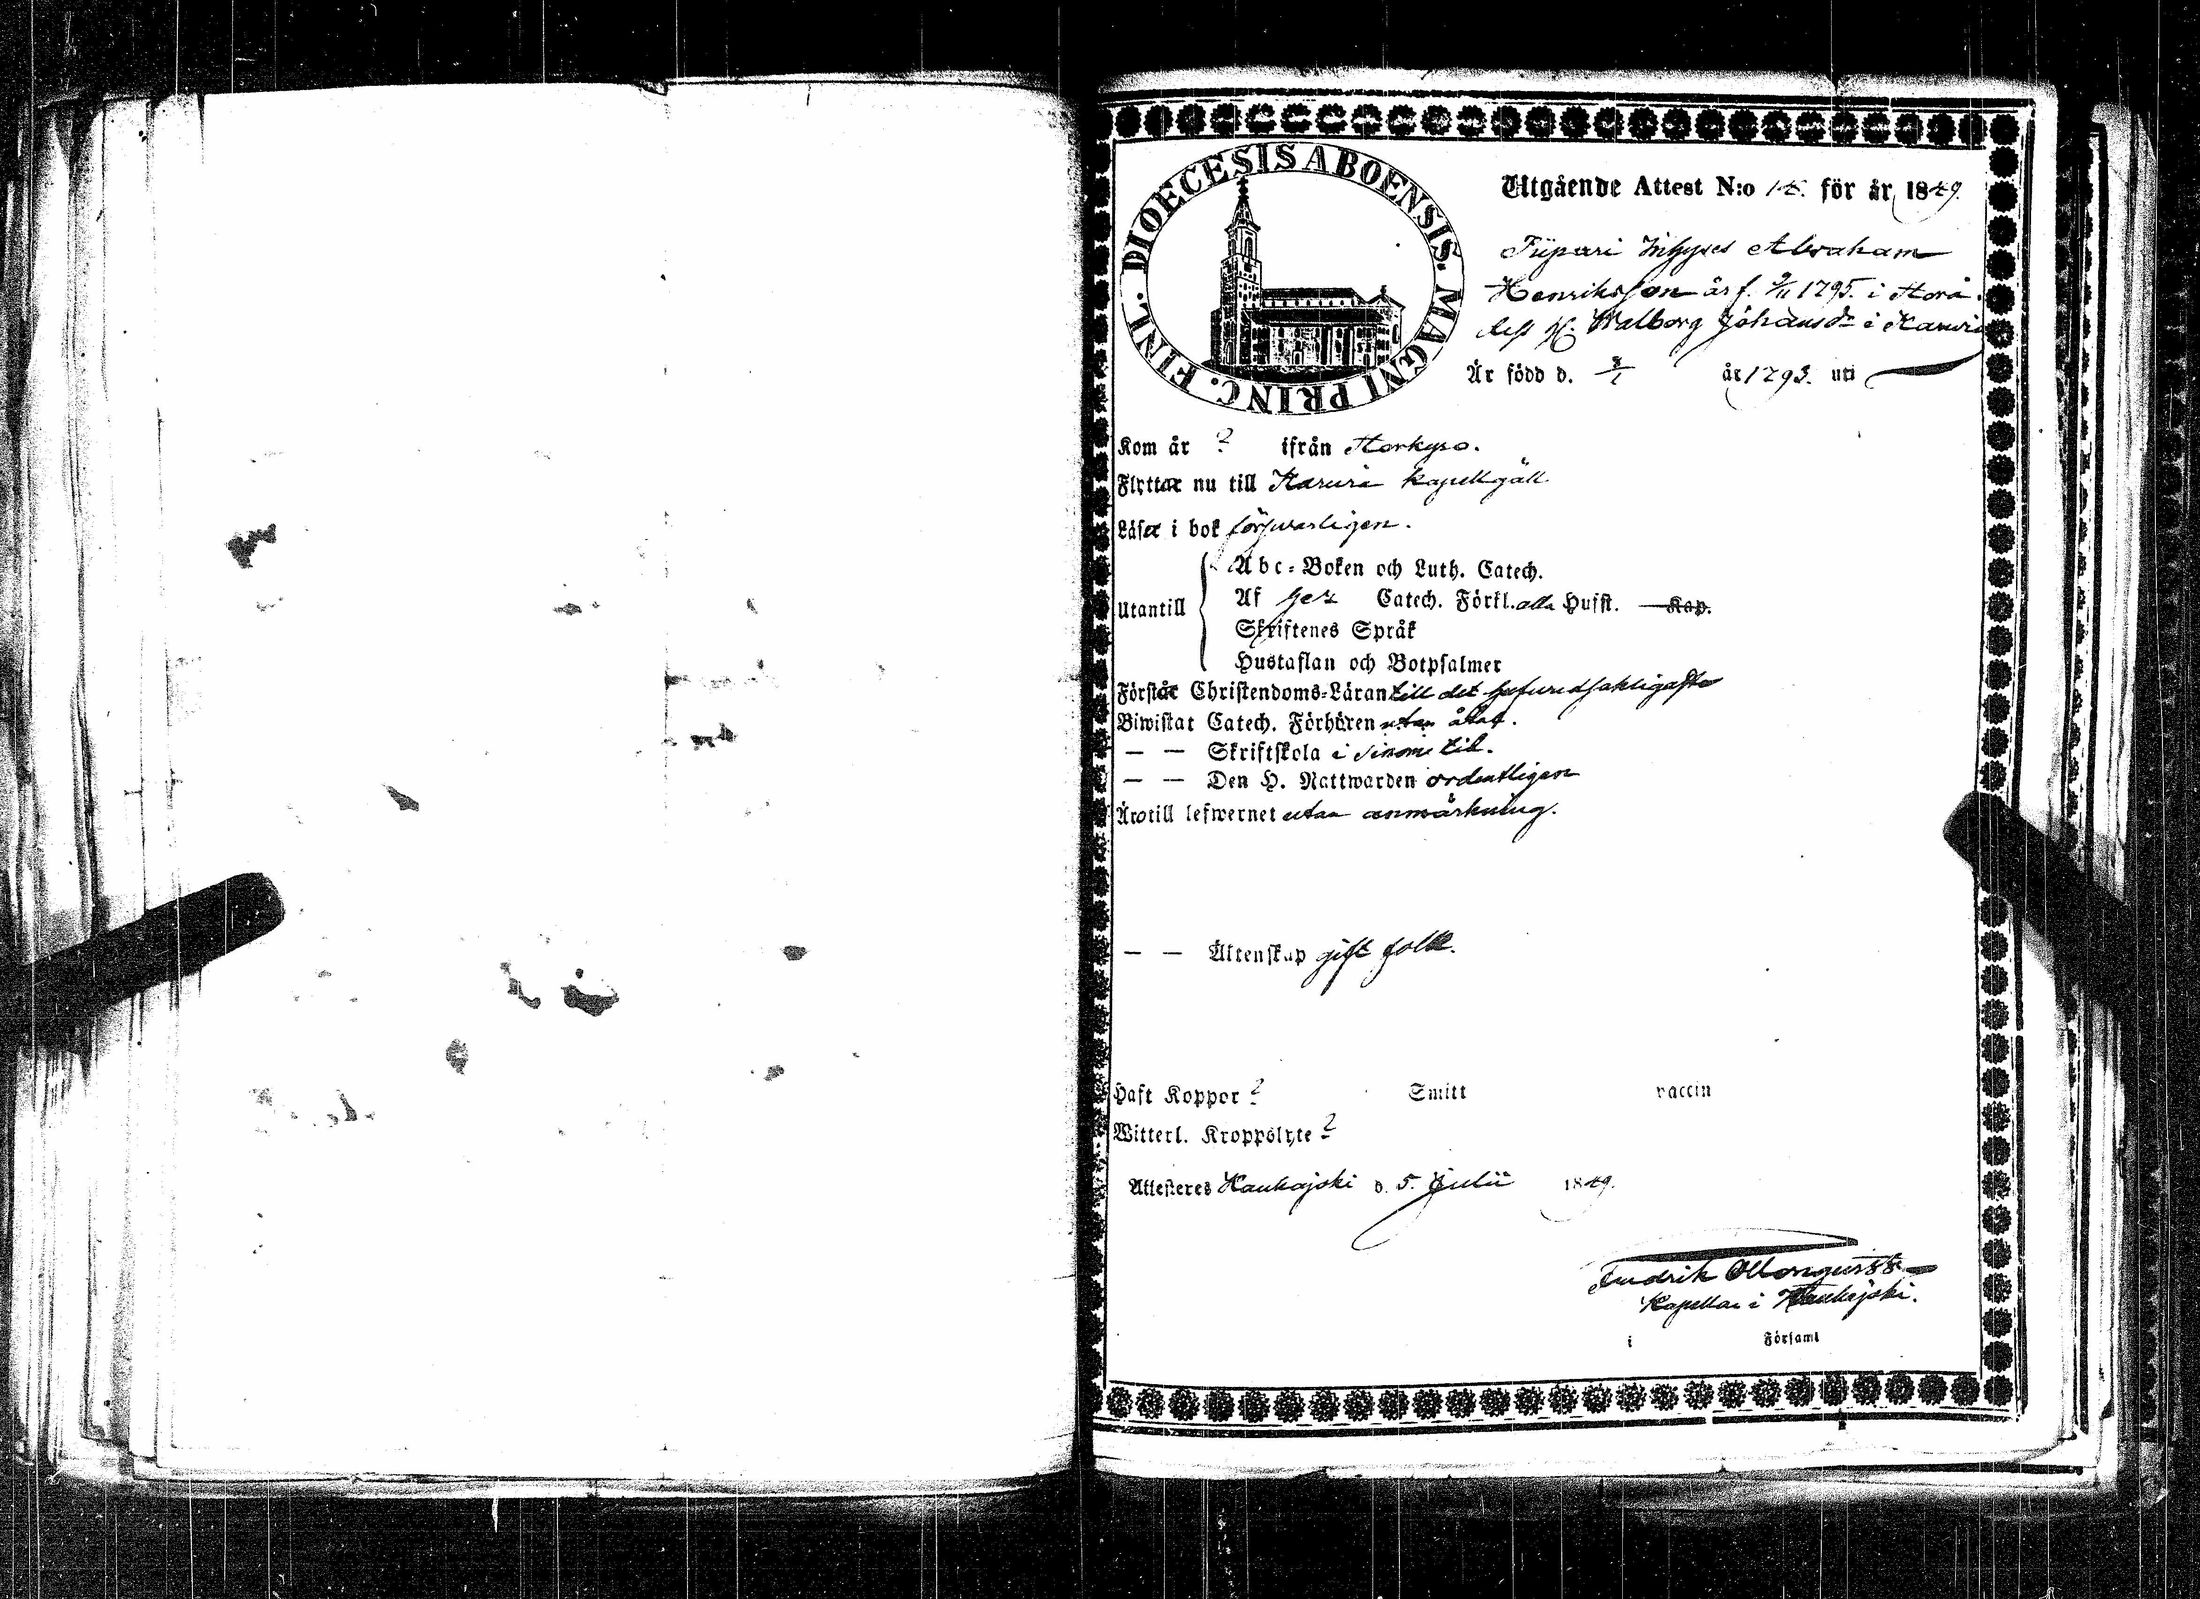 DIOECESIS ABOENSIS. MAGNI PRINC. FINL.
Utgående Attest N:o 14. för år 1849.
Abraham
Henriksson är f. 9/11 1795. i Storå.
H. Walborg Johansdr i
Är född d. år 1793. uti
Kom år ? ifrån Storkyro.
Flyttar nu till kapellgäll
Läser i bok försvarligen.
Utantill
Abc-Boken och Luth. Catech.
Af Catech. Förkl. alla Hufst. Kap.
Skriftenes Språk
Hustaflan och Botpsalmer
Förstår Christendoms-Läran till det hufvudsakligaste
Biwistat Catech. Förhören utan åtal.
— — Skriftskola i sinom tid.
— — Den H. Nattwarden ordentligen
Äro till lefwernet utan anmärkning.
— — Äktenskap gift folk.
Haft Koppor ? Smitt vaccin
Witterl. Kroppslyte ?
Attesteres Kauhajoki d. 5. Julii 1849.
Fredrik
Kapellan i Kauhajoki.
i Församl